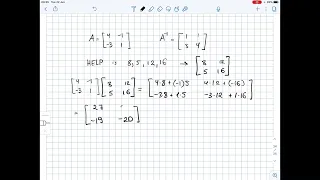 A = [4 -1 -3 1] A⁻¹ = [1 1 3 4]
HELP : 8, 5, 12, 16 → [8 12 5 16]
[4 -1 -3 1] [8 12 5 16] = [4·8+(-1)5 4·12+(-16) -3·8+1·5 -3·12+1·16]
= [27 -19 -20]